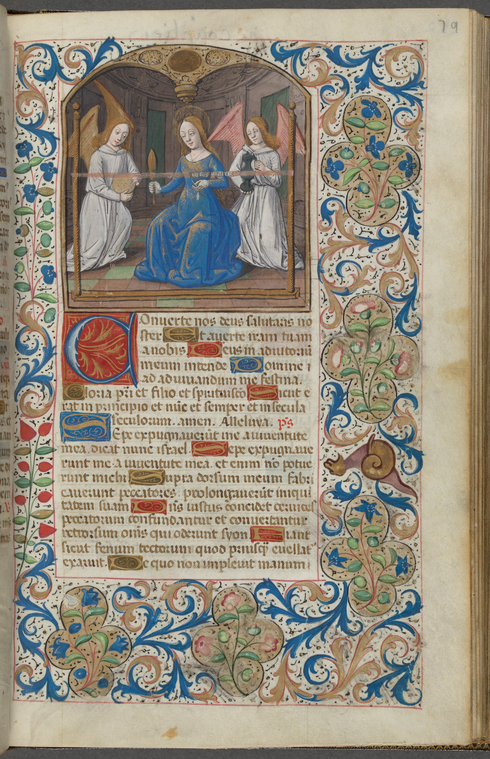 79
Onverte nos deus salutaris no
ster Et averte iram tuam
a nobis Deus in adiutoriū
meum intende Domine
ad adiuvandum me festina
Gloria pri et filio et spiritui sctō Sicut e
rat in principio et nūc et semper et in secula
seculorum. amen. Alleluya. ps
Sepe expugnaverūt me a iuventute
mea, dicat nunc israel Sepe expugnave
runt me a iuventute mea. et enim nō potue
runt michi Supra dorsum meum fabri
caverunt peccatores. prolongaverūt iniqui
tatem suam Dns iustus concidet cervices
peccatorum confundantur et convertantur
retrorsum om̄s qui oderunt syon Fiant
sicut fenum tectorum quod priusq̄ evellat
exaruit De quo non implevit manum